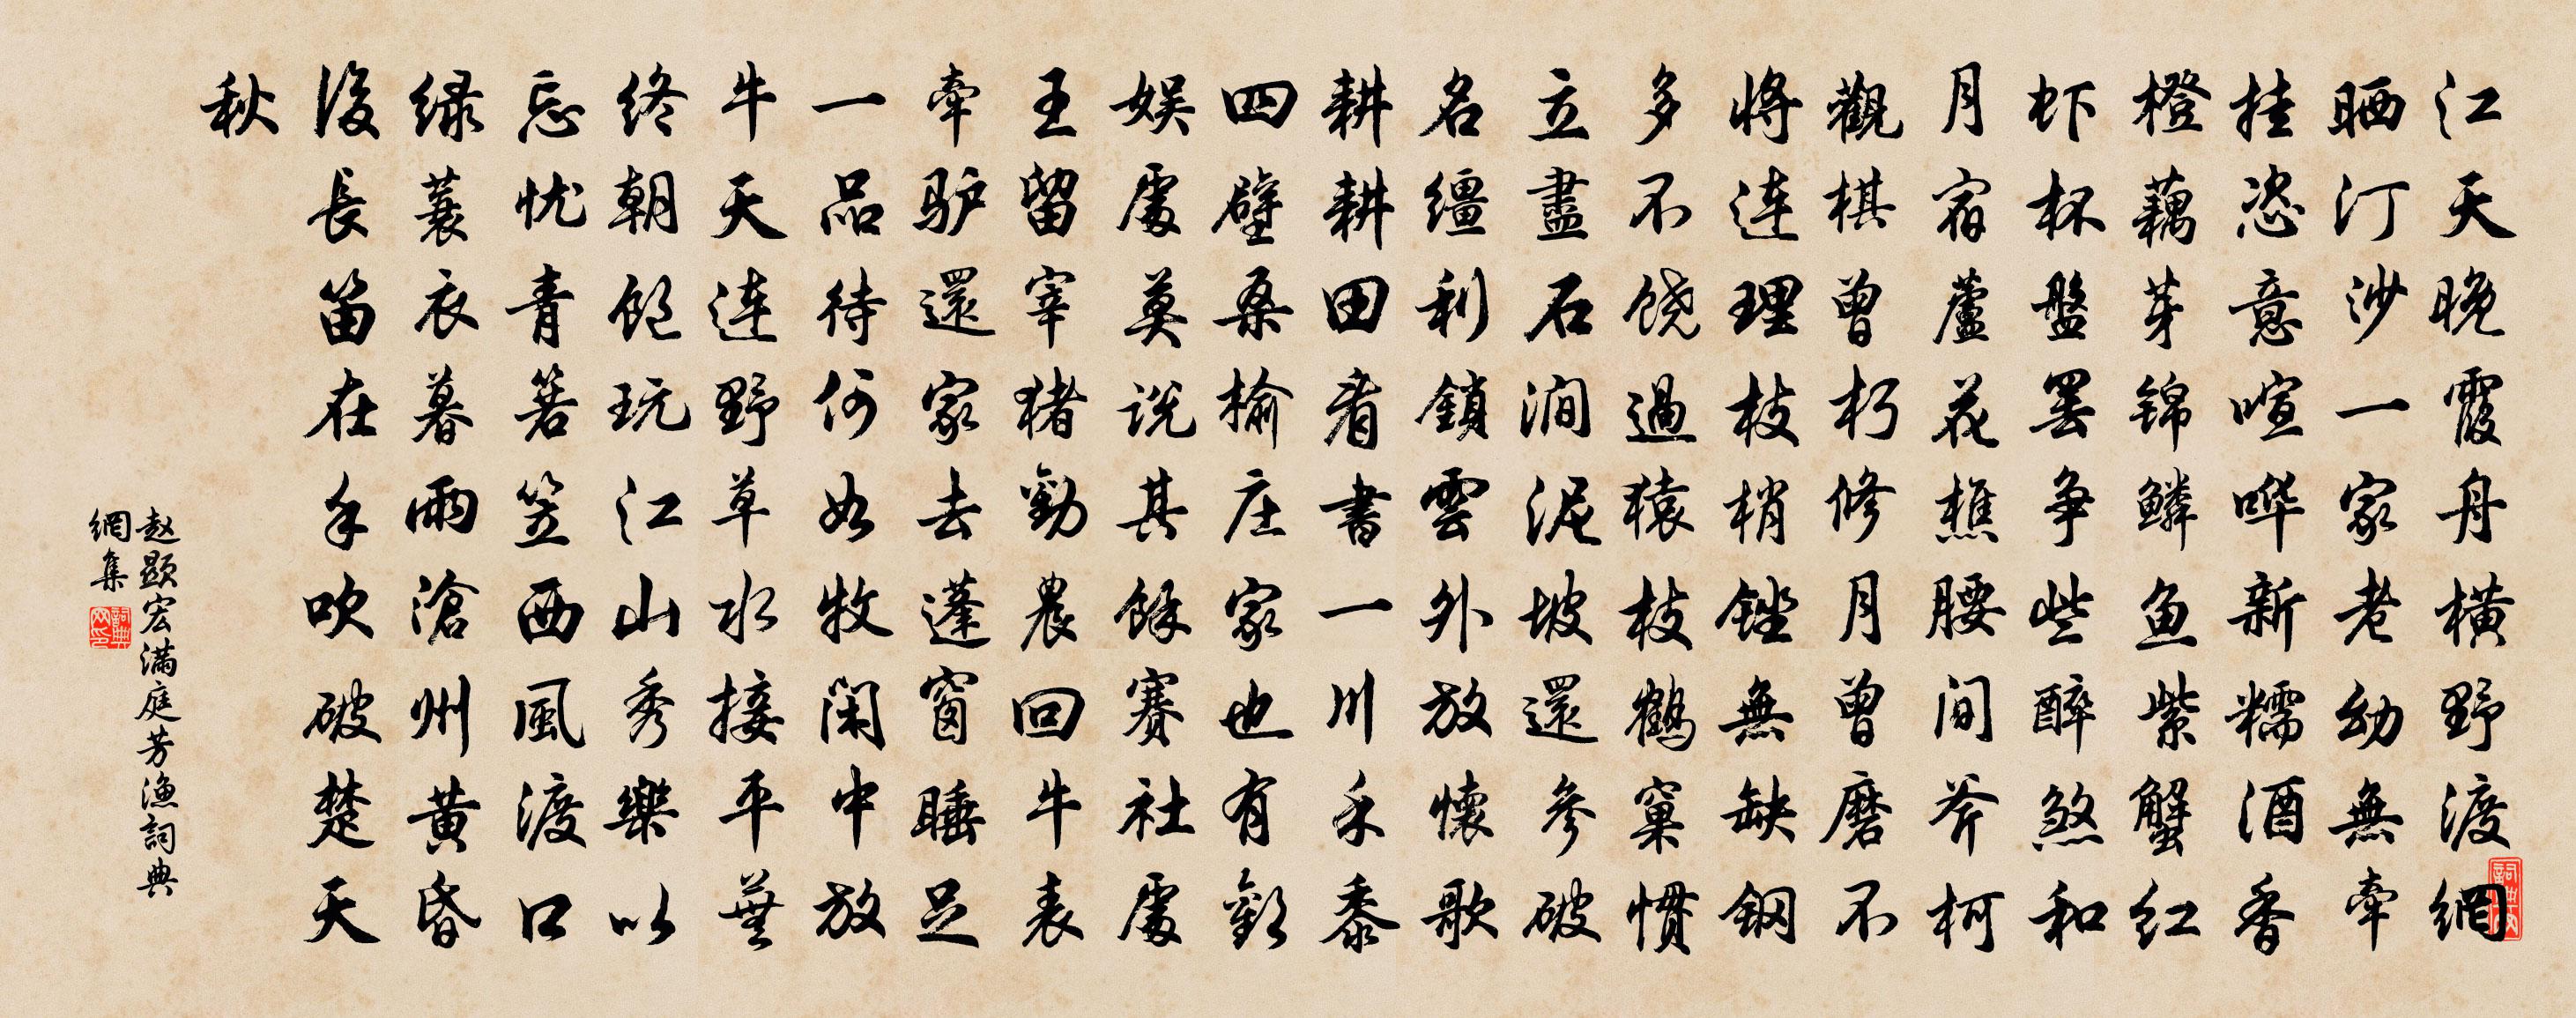 江天晚霞舟橫野渡網
晒汀沙一家老幼無牽
挂恣意喧哗新糯酒香
橙藕芽锦鳞鱼紫蟹红
虾杯盤罢争些醉煞和
月宿蘆花樵腰间斧柯
觀棋曾朽修月曾磨不
將连理枝梢锉無缺钢
多不饶過猿枝鹤窠惯
立盡石涧泥坡還參破
名缰利鎖雲外放懷歌
耕耕田看書一川禾黍
四壁桑榆庄家也有歡
娱處莫说其餘赛社處
王留宰猪勸農回牛表
牽驴還家去蓬窗睡足
一品待何如牧闲中放
牛天连野草水接平蕪
终朝饱玩江山秀樂以
忘忧青箬笠西風渡口
绿蓑衣暮雨滄州黄昏
後長笛在手吹破楚天
秋
赵顕宏满庭芳漁詞典
網集
詞典網印